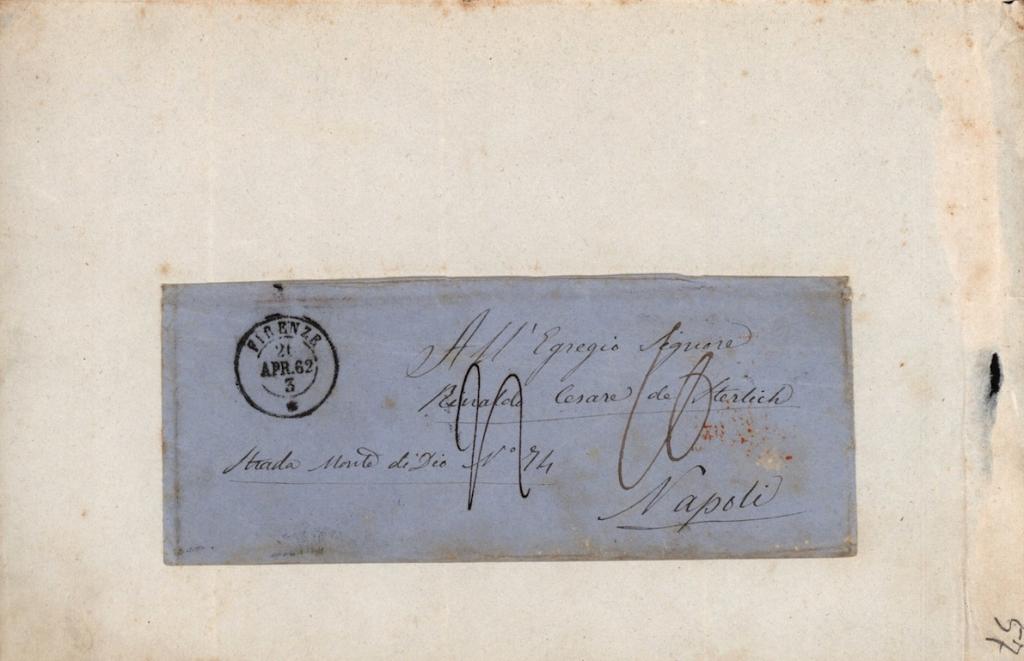 FIRENZE
21
APR.62
3
All' Egregio Signore
Rinaldo Cesare de Sterlich
Strada Monte di Dio N° 74
Napoli